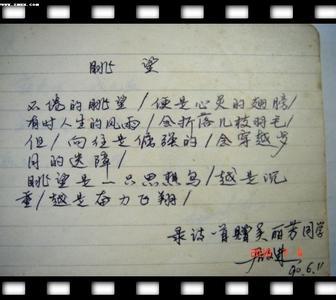 眺 望
不倦的眺望/便是心灵的翅膀/
有时人生的风雨/会折落几枝羽毛
但/向往是倔强的/会穿越岁
月的迷障/
眺望是一只思想鸟/越是沉
重/越是奋力飞翔/
录诗一首赠吴丽芳同学
90.6.11